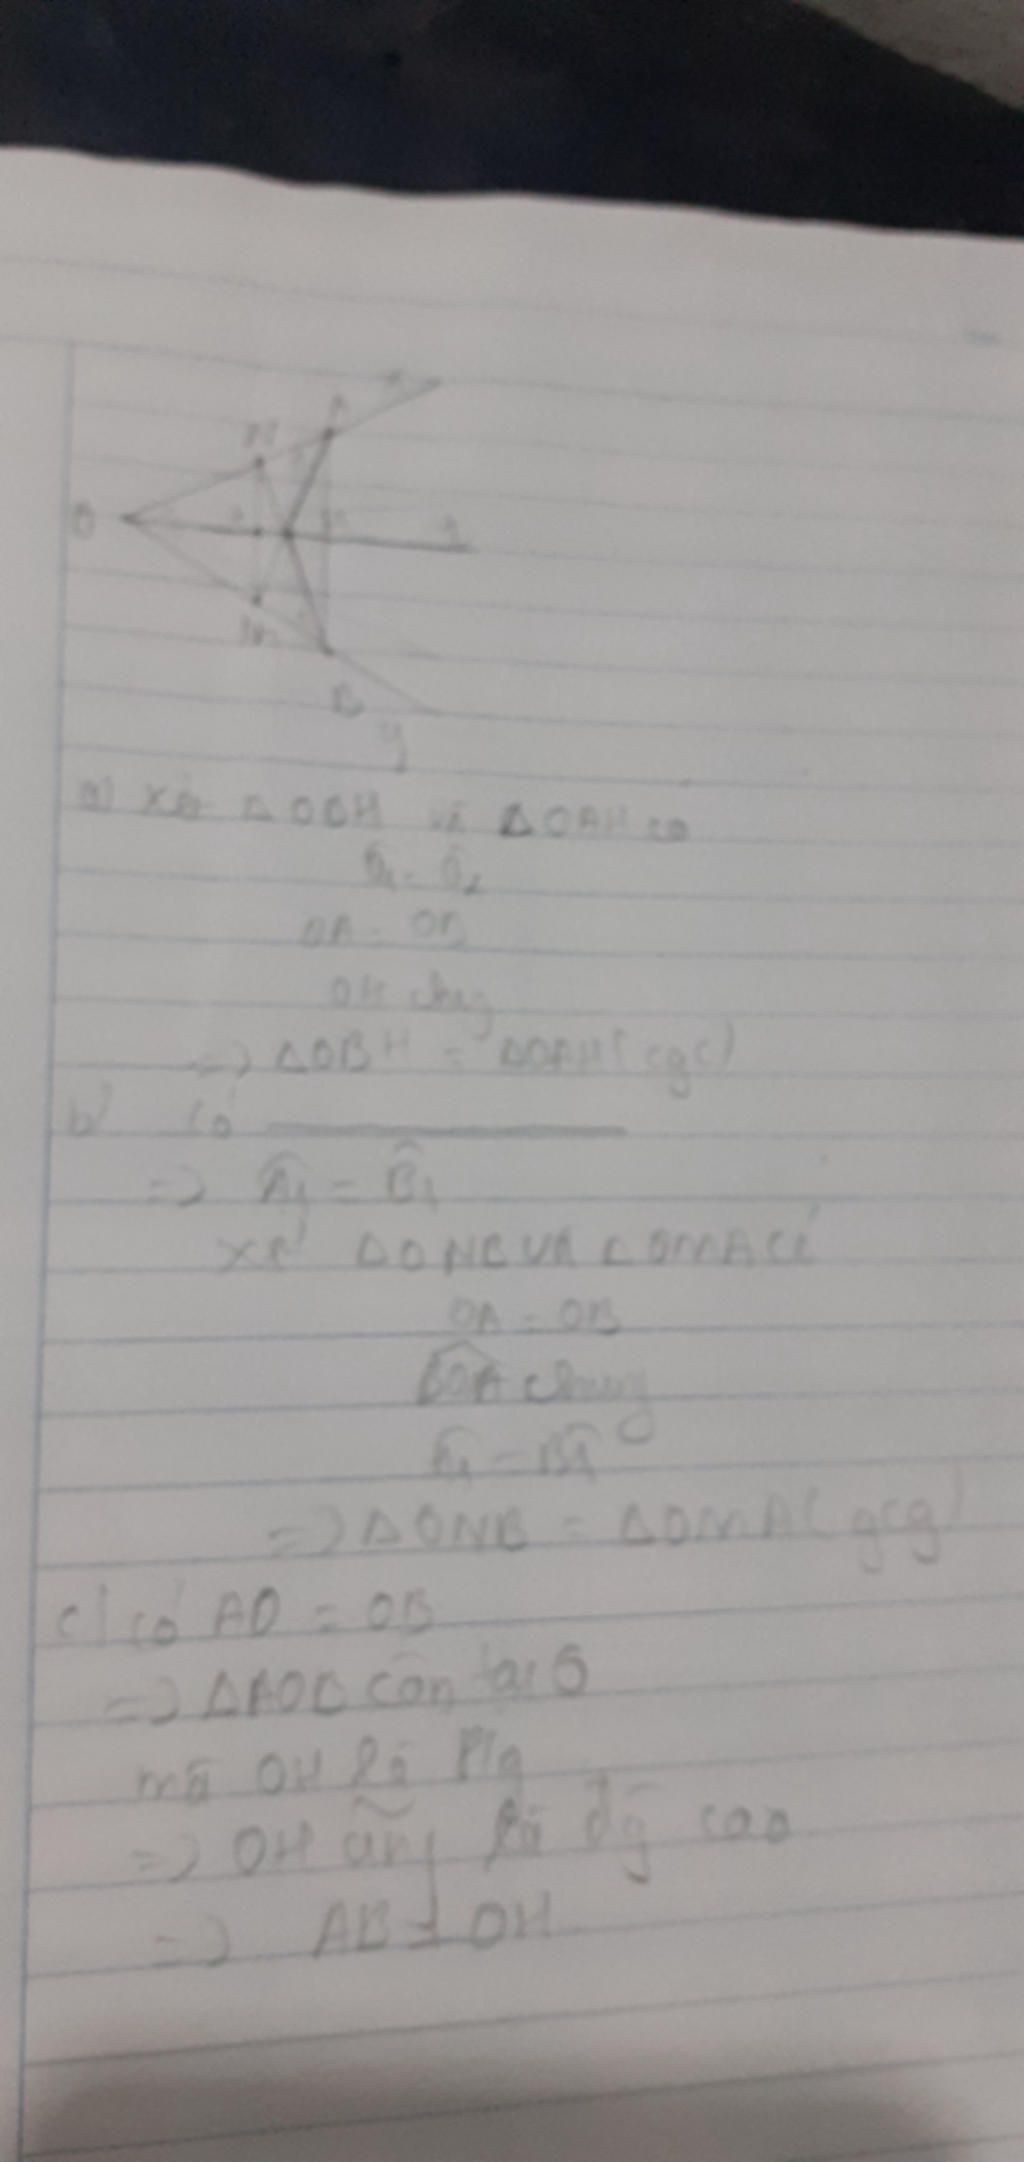 A
N
O
M
B
y
a) Xét ΔOBH và ΔOAH có
Ô₁ = Ô₂
OA = OB
OH chung
=> ΔOBH = ΔOAH (cgc)
b) Có
=> Â₁ = B̂₁
xét ΔONB và ΔOMA có
OA = OB
BOA chung
Â₁ = B̂₁
=> ΔONB = ΔOMA (gcg)
c) có AO = OB
=> ΔAOB cân tại O
mà OH là P/g
=> OH cũng là đg cao
=> AB ⊥ OH